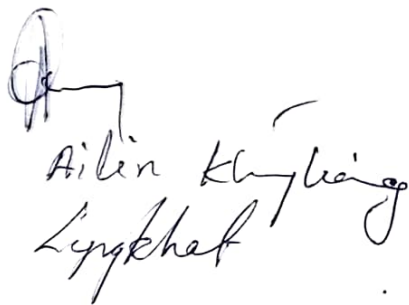 Ailin Khyliang
Lyngkhat